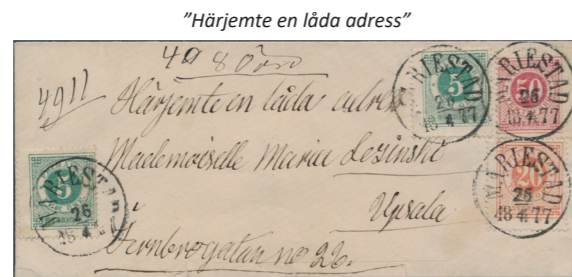 "Härjemte en låda adress"
49 8 Öre
4911
Härjemte en låda adress
Mademoiselle Maria
Upsala
Jernbrogatan no 22.
5
MARIESTAD
26
18 4 77
50
MARIESTAD
26
18 4 77
20
MARIESTAD
26
18 4 77
5
MARIESTAD
26
18 4